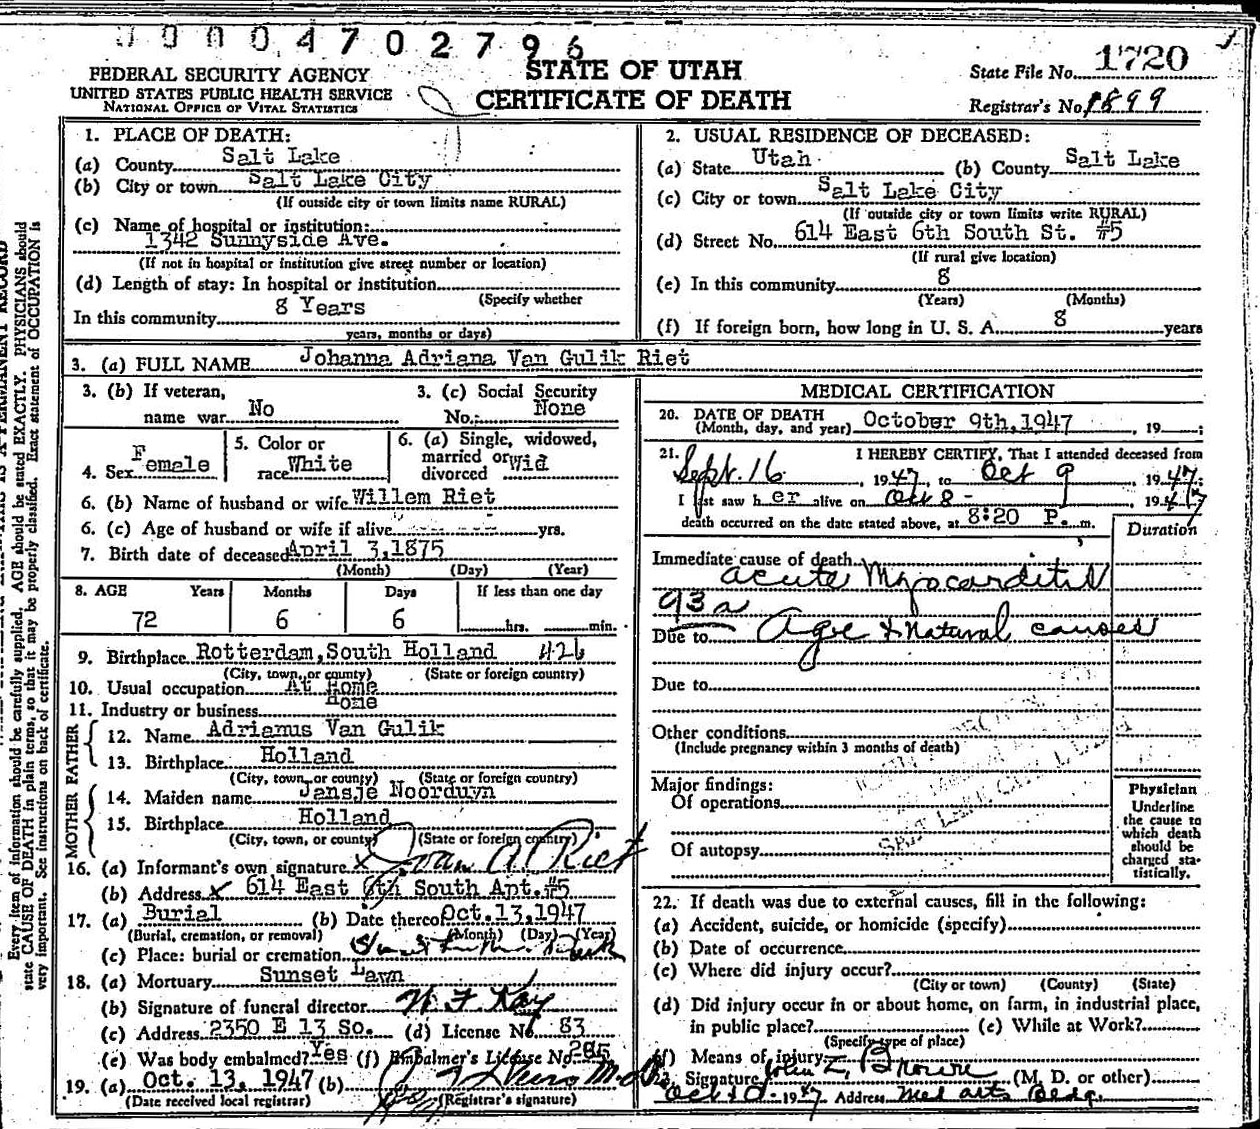 0000 4 7 0 2 7 9 6
1720
FEDERAL SECURITY AGENCY
UNITED STATES PUBLIC HEALTH SERVICE
NATIONAL OFFICE OF VITAL STATISTICS
STATE OF UTAH
CERTIFICATE OF DEATH
State File No.
Registrar's No. 1899
1. PLACE OF DEATH:
(a) County Salt Lake
(b) City or town Salt Lake City
(If outside city or town limits name RURAL)
(c) Name of hospital or institution:
1342 Sunnyside Ave.
(If not in hospital or institution give street number or location)
(d) Length of stay: In hospital or institution
(Specify whether
In this community 8 Years
years, months or days)
2. USUAL RESIDENCE OF DECEASED:
(a) State Utah (b) County Salt Lake
(c) City or town Salt Lake City
(If outside city or town limits write RURAL)
(d) Street No. 614 East 6th South St. #5
(If rural give location)
(e) In this community 8
(Years) (Months)
(f) If foreign born, how long in U. S. A. 8 years
3. (a) FULL NAME Johanna Adriana Van Gulik Riet
3. (b) If veteran,
name war No
3. (c) Social Security
No.: None
4. Sex Female
5. Color or
race White
6. (a) Single, widowed,
married or
divorced Wid
6. (b) Name of husband or wife Willem Riet
6. (c) Age of husband or wife if alive yrs.
7. Birth date of deceased April 3,1875
(Month) (Day) (Year)
8. AGE Years Months Days If less than one day
72 6 6 hrs. min.
9. Birthplace Rotterdam,South Holland 426
(City, town, or county) (State or foreign country)
10. Usual occupation At Home
11. Industry or business Home
FATHER
12. Name Adrianus Van Gulik
13. Birthplace Holland
(City, town, or county) (State or foreign country)
MOTHER
14. Maiden name Jansje Noorduyn
15. Birthplace Holland
(City, town, or county) (State or foreign country)
16. (a) Informant's own signature x A. Riet
(b) Address x 614 East 6th South Apt.#5
17. (a) Burial (b) Date thereof Oct.13,1947
(Burial, cremation, or removal) (Month) (Day) (Year)
(c) Place: burial or cremation
18. (a) Mortuary Sunset Lawn
(b) Signature of funeral director
(c) Address 2350 E 13 So. (d) License No. 83
(e) Was body embalmed? Yes (f) Embalmer's License No.
19. (a) Oct. 13, 1947 (b)
(Date received local registrar) (Registrar's signature)
MEDICAL CERTIFICATION
20. DATE OF DEATH
(Month, day, and year) October 9th,1947 , 19 ;
21. I HEREBY CERTIFY, That I attended deceased from
Sept. 16 , 1947, to Oct 9 , 1947;
I last saw her alive on Oct 8 - , 1947
death occurred on the date stated above, at 8:20 P. m.
Duration
Immediate cause of death
acute Myocarditis
93a
Due to Age & natural causes
Due to
Other conditions
(Include pregnancy within 3 months of death)
Major findings:
Of operations
Of autopsy
Physician
Underline
the cause to
which death
should be
charged sta-
tistically.
22. If death was due to external causes, fill in the following:
(a) Accident, suicide, or homicide (specify)
(b) Date of occurrence
(c) Where did injury occur?
(City or town) (County) (State)
(d) Did injury occur in or about home, on farm, in industrial place,
in public place? (e) While at Work?
(Specify type of place)
(f) Means of injury
Signature John Z. Brown (M. D. or other)
Oct 10 - 1947 Address Med arts Bldg.
Every item of information should be carefully supplied. AGE should be stated EXACTLY. PHYSICIANS should
state CAUSE OF DEATH in plain terms, so that it may be properly classified. Exact statement of OCCUPATION is
very important. See instructions on back of certificate.